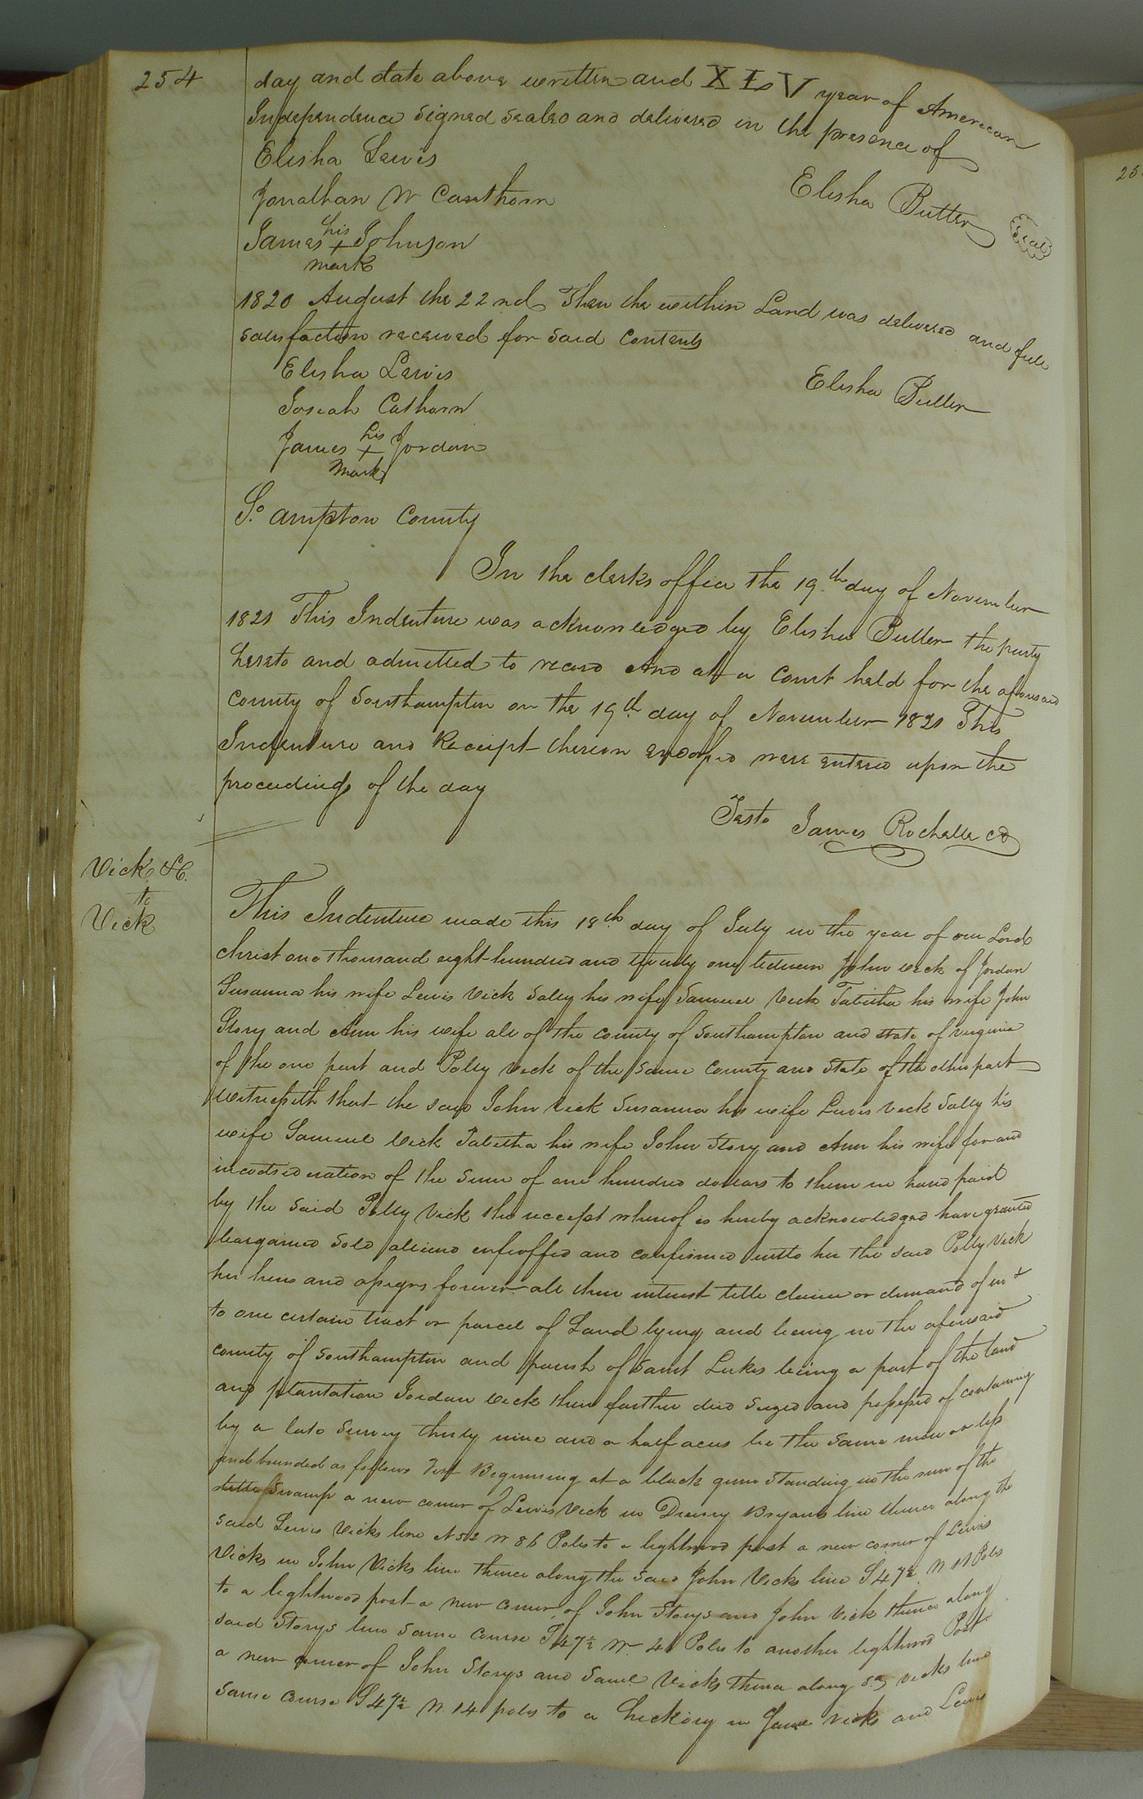 254
day and date above written and XLV year of American
Independence signed sealed and delivered in the presence of
Elisha Lewis
Jonathan W Cauthorn
Elisha Butler Seal
James his + mark Johnson
1820 August the 22nd Then the within Land was delivered and full
satisfaction received for said contents
Elisha Lewis
Elisha Butler
Josiah Cathorn
James his + mark Jordan
So. ampton County
In the clerks office the 19th day of November
1821 This Indenture was acknowledged by Elisha Butler the party
hereto and admitted to record And at a Court held for the aforesaid
County of Southampton on the 19th day of November 1821 This
Indenture and Receipt thereon endorsed were entered upon the
proceedings of the day
Teste James Rochelle CC
Vick &C.
to
Vick
This Indenture made this 18th day of July in the year of our Lord
Christ one thousand eight hundred and twenty one between John Vick of Jordan
Susanna his wife Lewis Vick Salley his wife Samuel Vick Tabitha his wife John
Story and Ann his wife all of the county of Southampton and state of virginia
of the one part and Polley Vick of the same County and State of the other part
Witnesseth that the said John Vick Susanna his wife Lewis Vick Sally his
wife Samuel Vick Tabitha his wife John Story and Ann his wife for and
in consideration of the sum of one hundred dollars to them in hand paid
by the said Polly Vick the receipt whereof is hereby acknowledged have granted
bargained sold aliened enfeoffed and confirmed unto her the said Polly Vick
her heirs and assigns forever all their interest title claim or demand of in &
to one certain tract or parcel of Land lying and being in the aforesaid
county of Southampton and parish of Saint Lukes being a part of the land
and plantation Jordan Vick their father died seized and possessed of containing
by a late Survey thirty nine and a half acres be the same more or less
and bounded as follows Beginning at a black gum standing in the run of the
little Swamp a new corner of Lewis Vick in Drewry Bryants line thence along the
said Lewis Vicks line N 52 W 86 Poles to a lightwood post a new corner of Lewis
Vicks in John Vicks line thence along the said John Vicks line S 47½ W 11 Poles
to a lightwood post a new corner of John Storys and John Vick thence along
said Storys line same course S 47½ W 40 Poles to another lightwood Post
a new corner of John Storys and Saml Vicks thence along Vicks line
same course S 47½ W 14 poles to a hickory in Vicks and Lewis